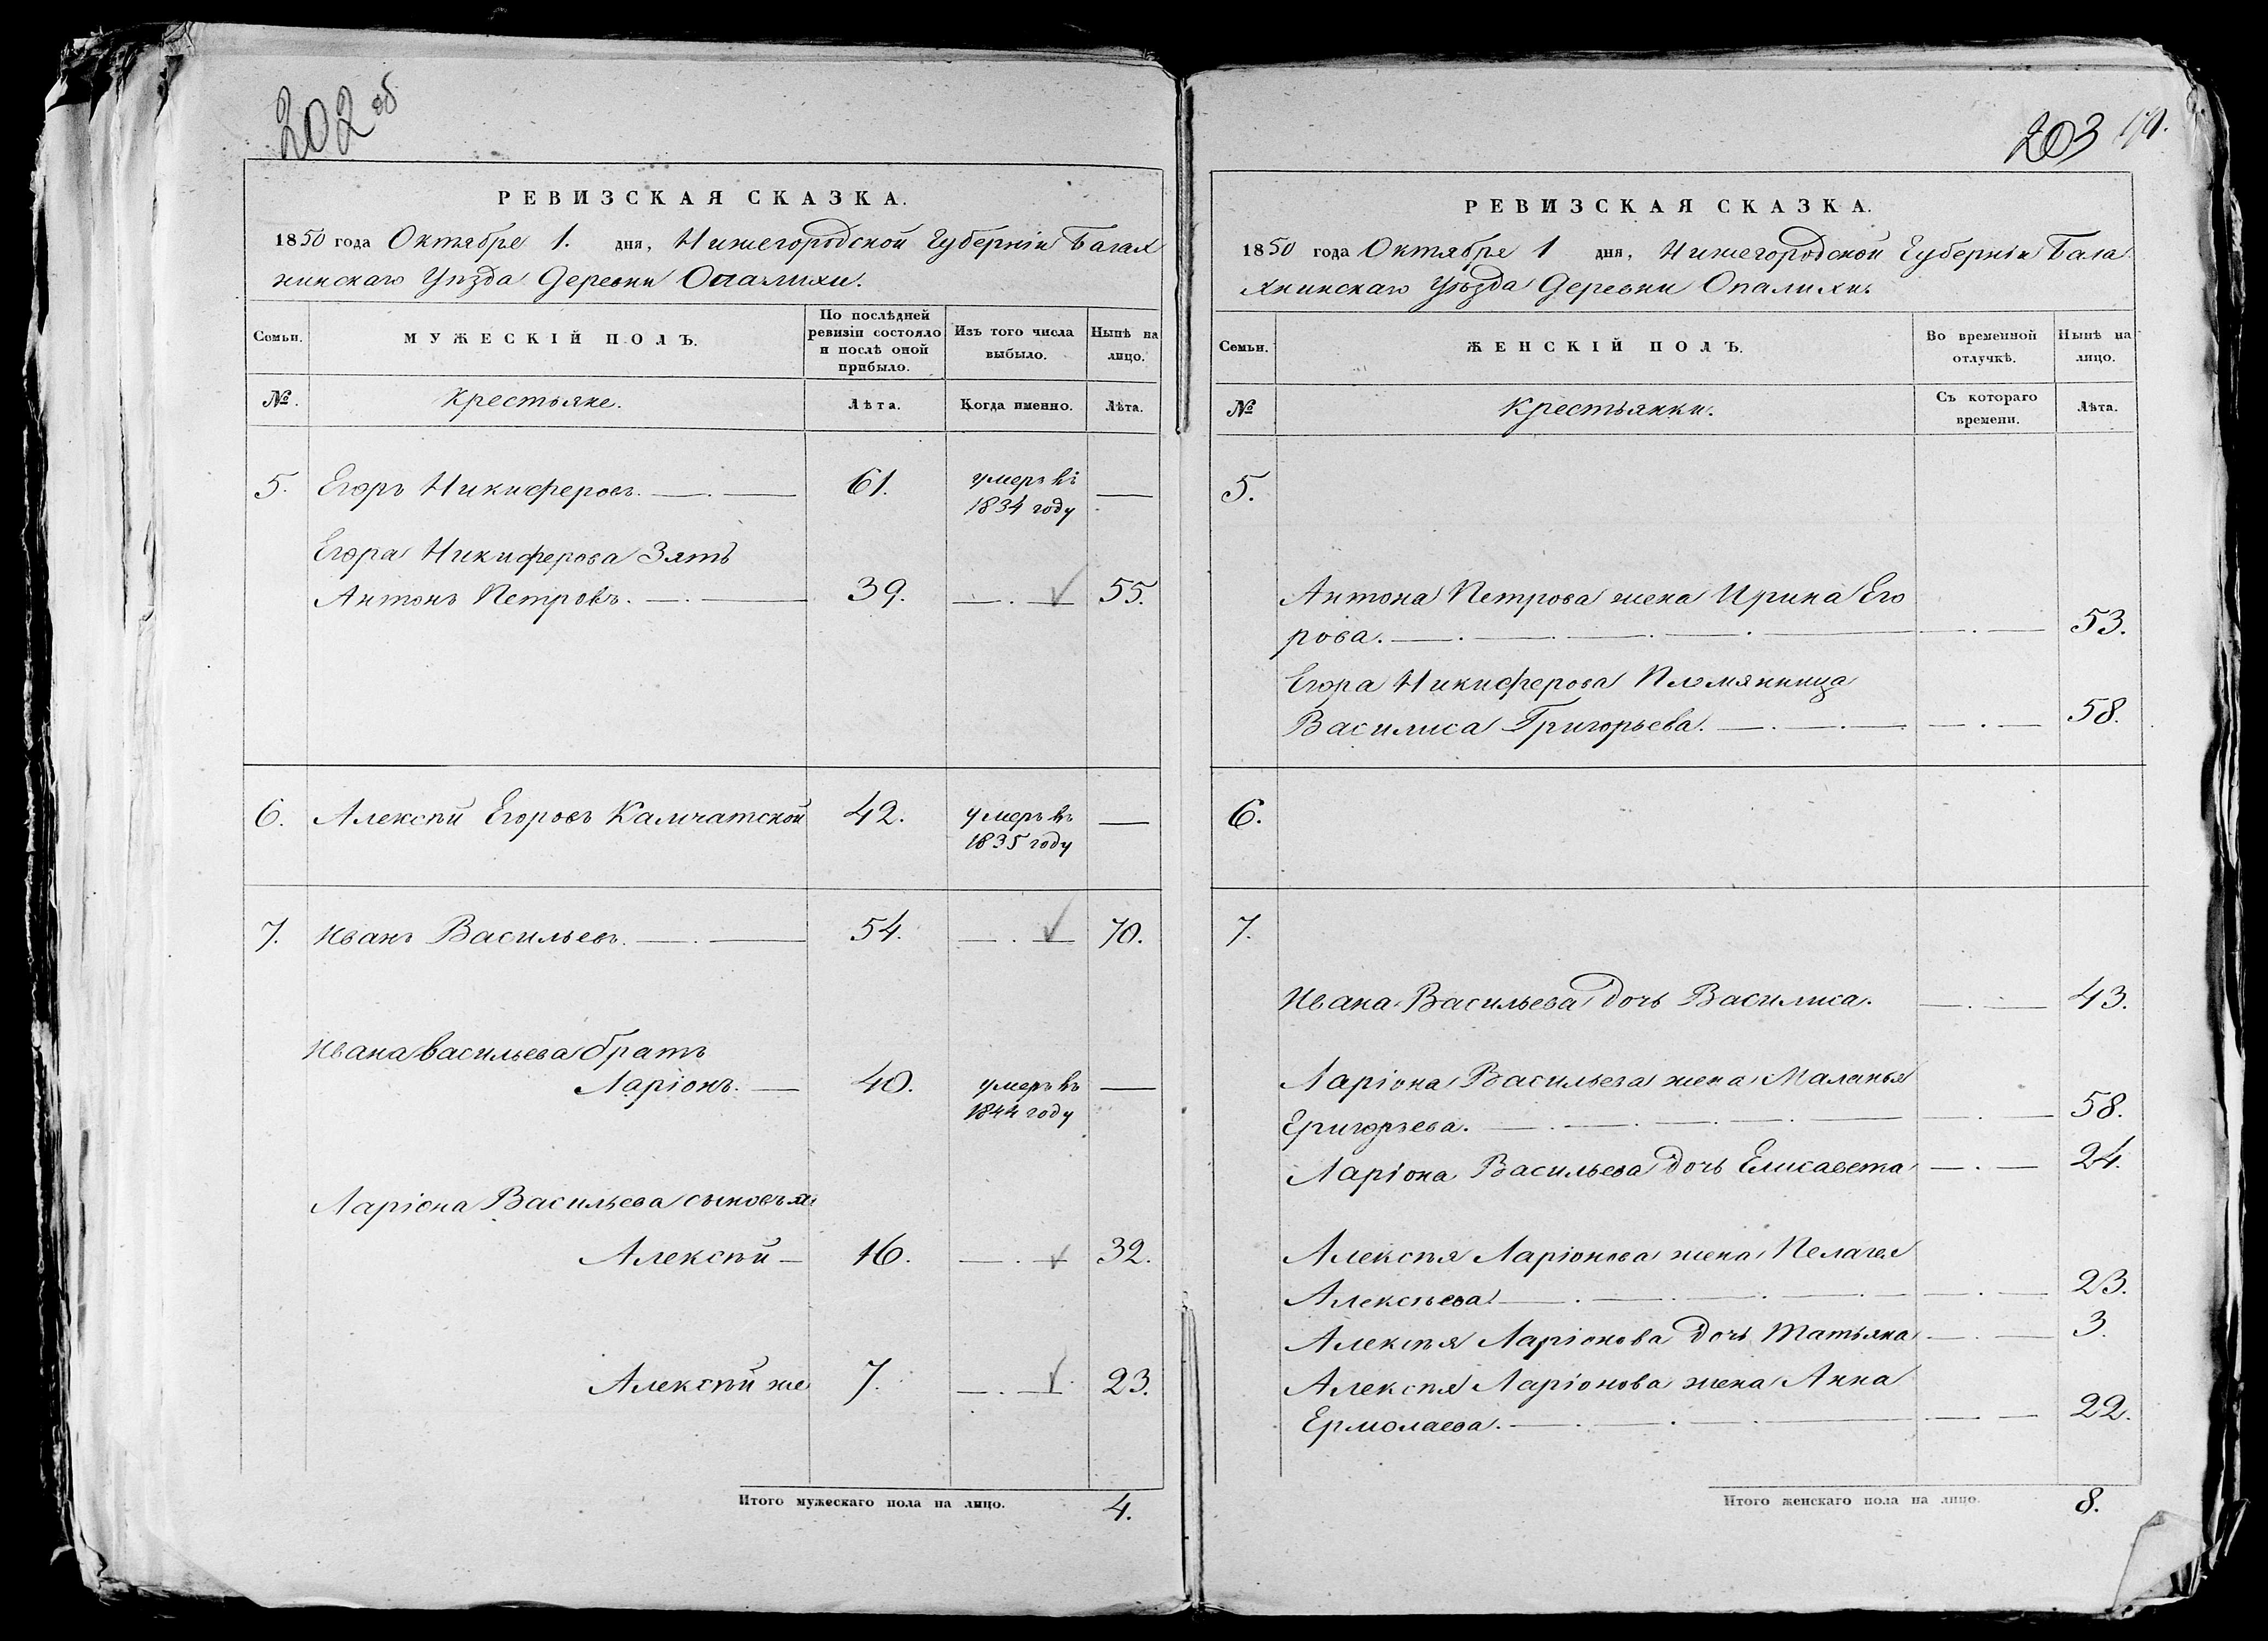 202 об
РЕВИЗСКАЯ СКАЗКА.
1850 года Октября 1. дня, Нижегородской Губерніи Балах
нинскаго Уѣзда Деревни Опалихи.
Семьи.
МУЖЕСКІЙ ПОЛЪ.
По послѣдней
ревизіи состояло
и послѣ оной
прибыло.
Изъ того числа
выбыло.
Нынѣ на
лицо.
№.
Крестьяне.
Лѣта.
Когда именно.
Лѣта.
5. Егоръ Никиферовъ. 61. умеръ въ —
1834 году
Егора Никиферова Зять
Антонъ Петровъ. 39. — . — 55.
6. Алексѣй Егоровъ Камчатской 42. умеръ въ —
1835 году
7. Иванъ Васильевъ. 54. — . — 70.
Ивана Васильева братъ
Ларіонъ. — 40. умеръ въ —
1844 году
Ларіона Васильева сыновья
Алексѣй — 16. — . — 32.
Алексѣй же 7. — . — 23.
Итого мужескаго пола на лицо. 4.
203
РЕВИЗСКАЯ СКАЗКА.
1850 года Октября 1 дня, Нижегородской Губерніи Бала
хнинскаго Уѣзда Деревни Опалихи.
Семьи.
ЖЕНСКІЙ ПОЛЪ.
Во временной
отлучкѣ.
Нынѣ на
лицо.
№
Крестьянки.
Съ котораго
времени.
Лѣта.
5.
Антона Петрова жена Ирина Его
рова. — . — 53.
Егора Никиферова Племянница
Василиса Григорьева. — . — 58.
6.
7.
Ивана Васильева дочь Василиса. — . — 43.
Ларіона Васильева жена Маланья
Григорьева. — . — 58.
Ларіона Васильева дочь Елисавета — . — 24.
Алексѣя Ларіонова жена Пелагея
Алексѣева. — . — 23.
Алексѣя Ларіонова дочь Татьяна — . — 3.
Алексѣя Ларіонова жена Анна
Ермолаева. — . — 22.
Итого женскаго пола на лицо. 8.